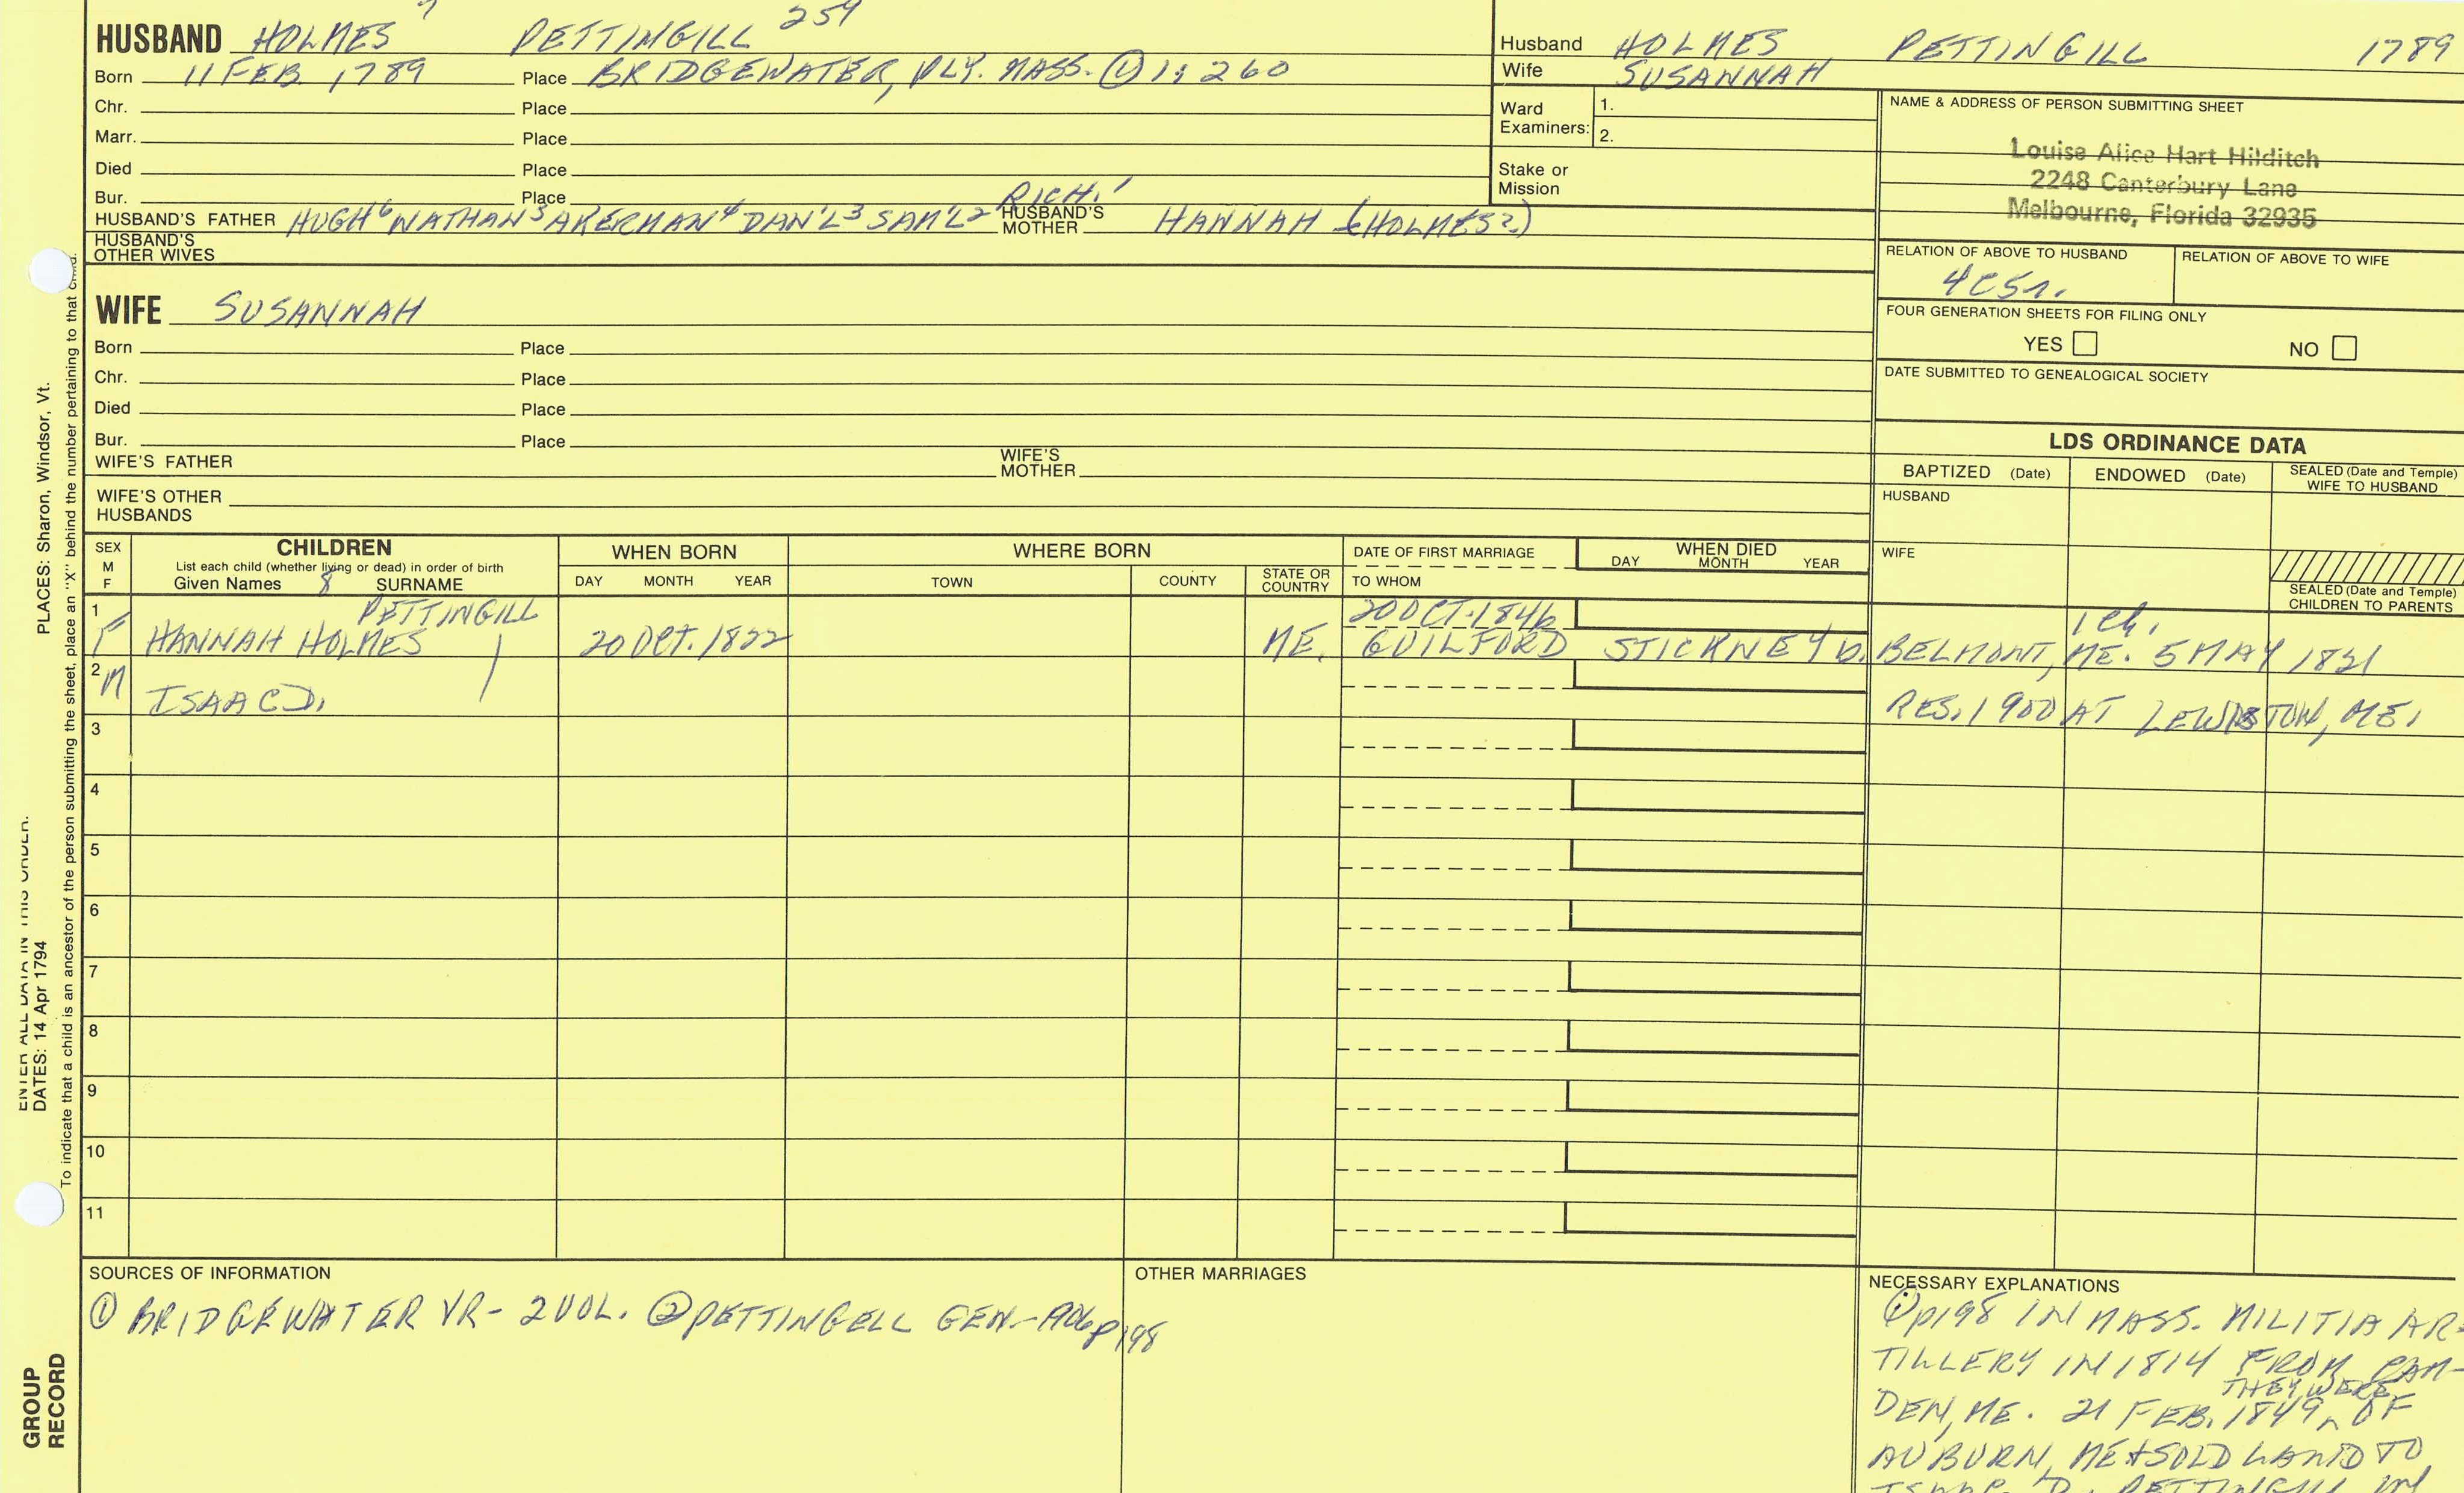 7 259
HUSBAND HOLMES PETTINGILL
Born 11 FEB. 1789 Place BRIDGEWATER, PLY. MASS. ① 1; 260
Chr. Place
Marr. Place
Died Place
Bur. Place RICH.1
HUSBAND'S FATHER HUGH6 NATHAN5 AKERMAN4 DAN'L3 SAM'L2 HUSBAND'S MOTHER HANNAH (HOLMES?)
HUSBAND'S OTHER WIVES
WIFE SUSANNAH
Born Place
Chr. Place
Died Place
Bur. Place
WIFE'S FATHER WIFE'S MOTHER
WIFE'S OTHER HUSBANDS
Husband HOLMES PETTINGILL 1789
Wife SUSANNAH
Ward Examiners: 1.
2.
Stake or Mission
NAME & ADDRESS OF PERSON SUBMITTING SHEET
Louise Alice Hart Hilditch
2248 Canterbury Lane
Melbourne, Florida 32935
RELATION OF ABOVE TO HUSBAND RELATION OF ABOVE TO WIFE
4C5r.
FOUR GENERATION SHEETS FOR FILING ONLY
YES NO
DATE SUBMITTED TO GENEALOGICAL SOCIETY
LDS ORDINANCE DATA
BAPTIZED (Date) ENDOWED (Date) SEALED (Date and Temple) WIFE TO HUSBAND
HUSBAND
WIFE
SEALED (Date and Temple) CHILDREN TO PARENTS
SEX M F
CHILDREN
List each child (whether living or dead) in order of birth
Given Names 8 SURNAME
WHEN BORN
DAY MONTH YEAR
WHERE BORN
TOWN COUNTY STATE OR COUNTRY
DATE OF FIRST MARRIAGE
TO WHOM
WHEN DIED
DAY MONTH YEAR
1 PETTINGILL 20 OCT. 1846 1 ch.
F HANNAH HOLMES 20 OCT. 1822 ME. GUILFORD STICKNEY b. BELMONT, ME. 5 MAY 1821
2
M ISAAC D. RES. 1900 AT LEWISTON, ME.
3
4
5
6
7
8
9
10
11
SOURCES OF INFORMATION
① BRIDGEWATER VR - 2 VOL. ② PETTINGELL GEN - 1906 p198
OTHER MARRIAGES
NECESSARY EXPLANATIONS
p198 IN MASS. MILITIA AR-
TILLERY IN 1814 FROM CAM-
THEY WERE
DEN, ME. 21 FEB. 1849 ^ OF
AUBURN, ME & SOLD LAND TO
ISAAC D. PETTINGILL IN
PLACES: Sharon, Windsor, Vt.
ENTER ALL DATA IN THIS ORDER.
DATES: 14 Apr 1794
To indicate that a child is an ancestor of the person submitting the sheet, place an "X" behind the number pertaining to that child.
GROUP RECORD